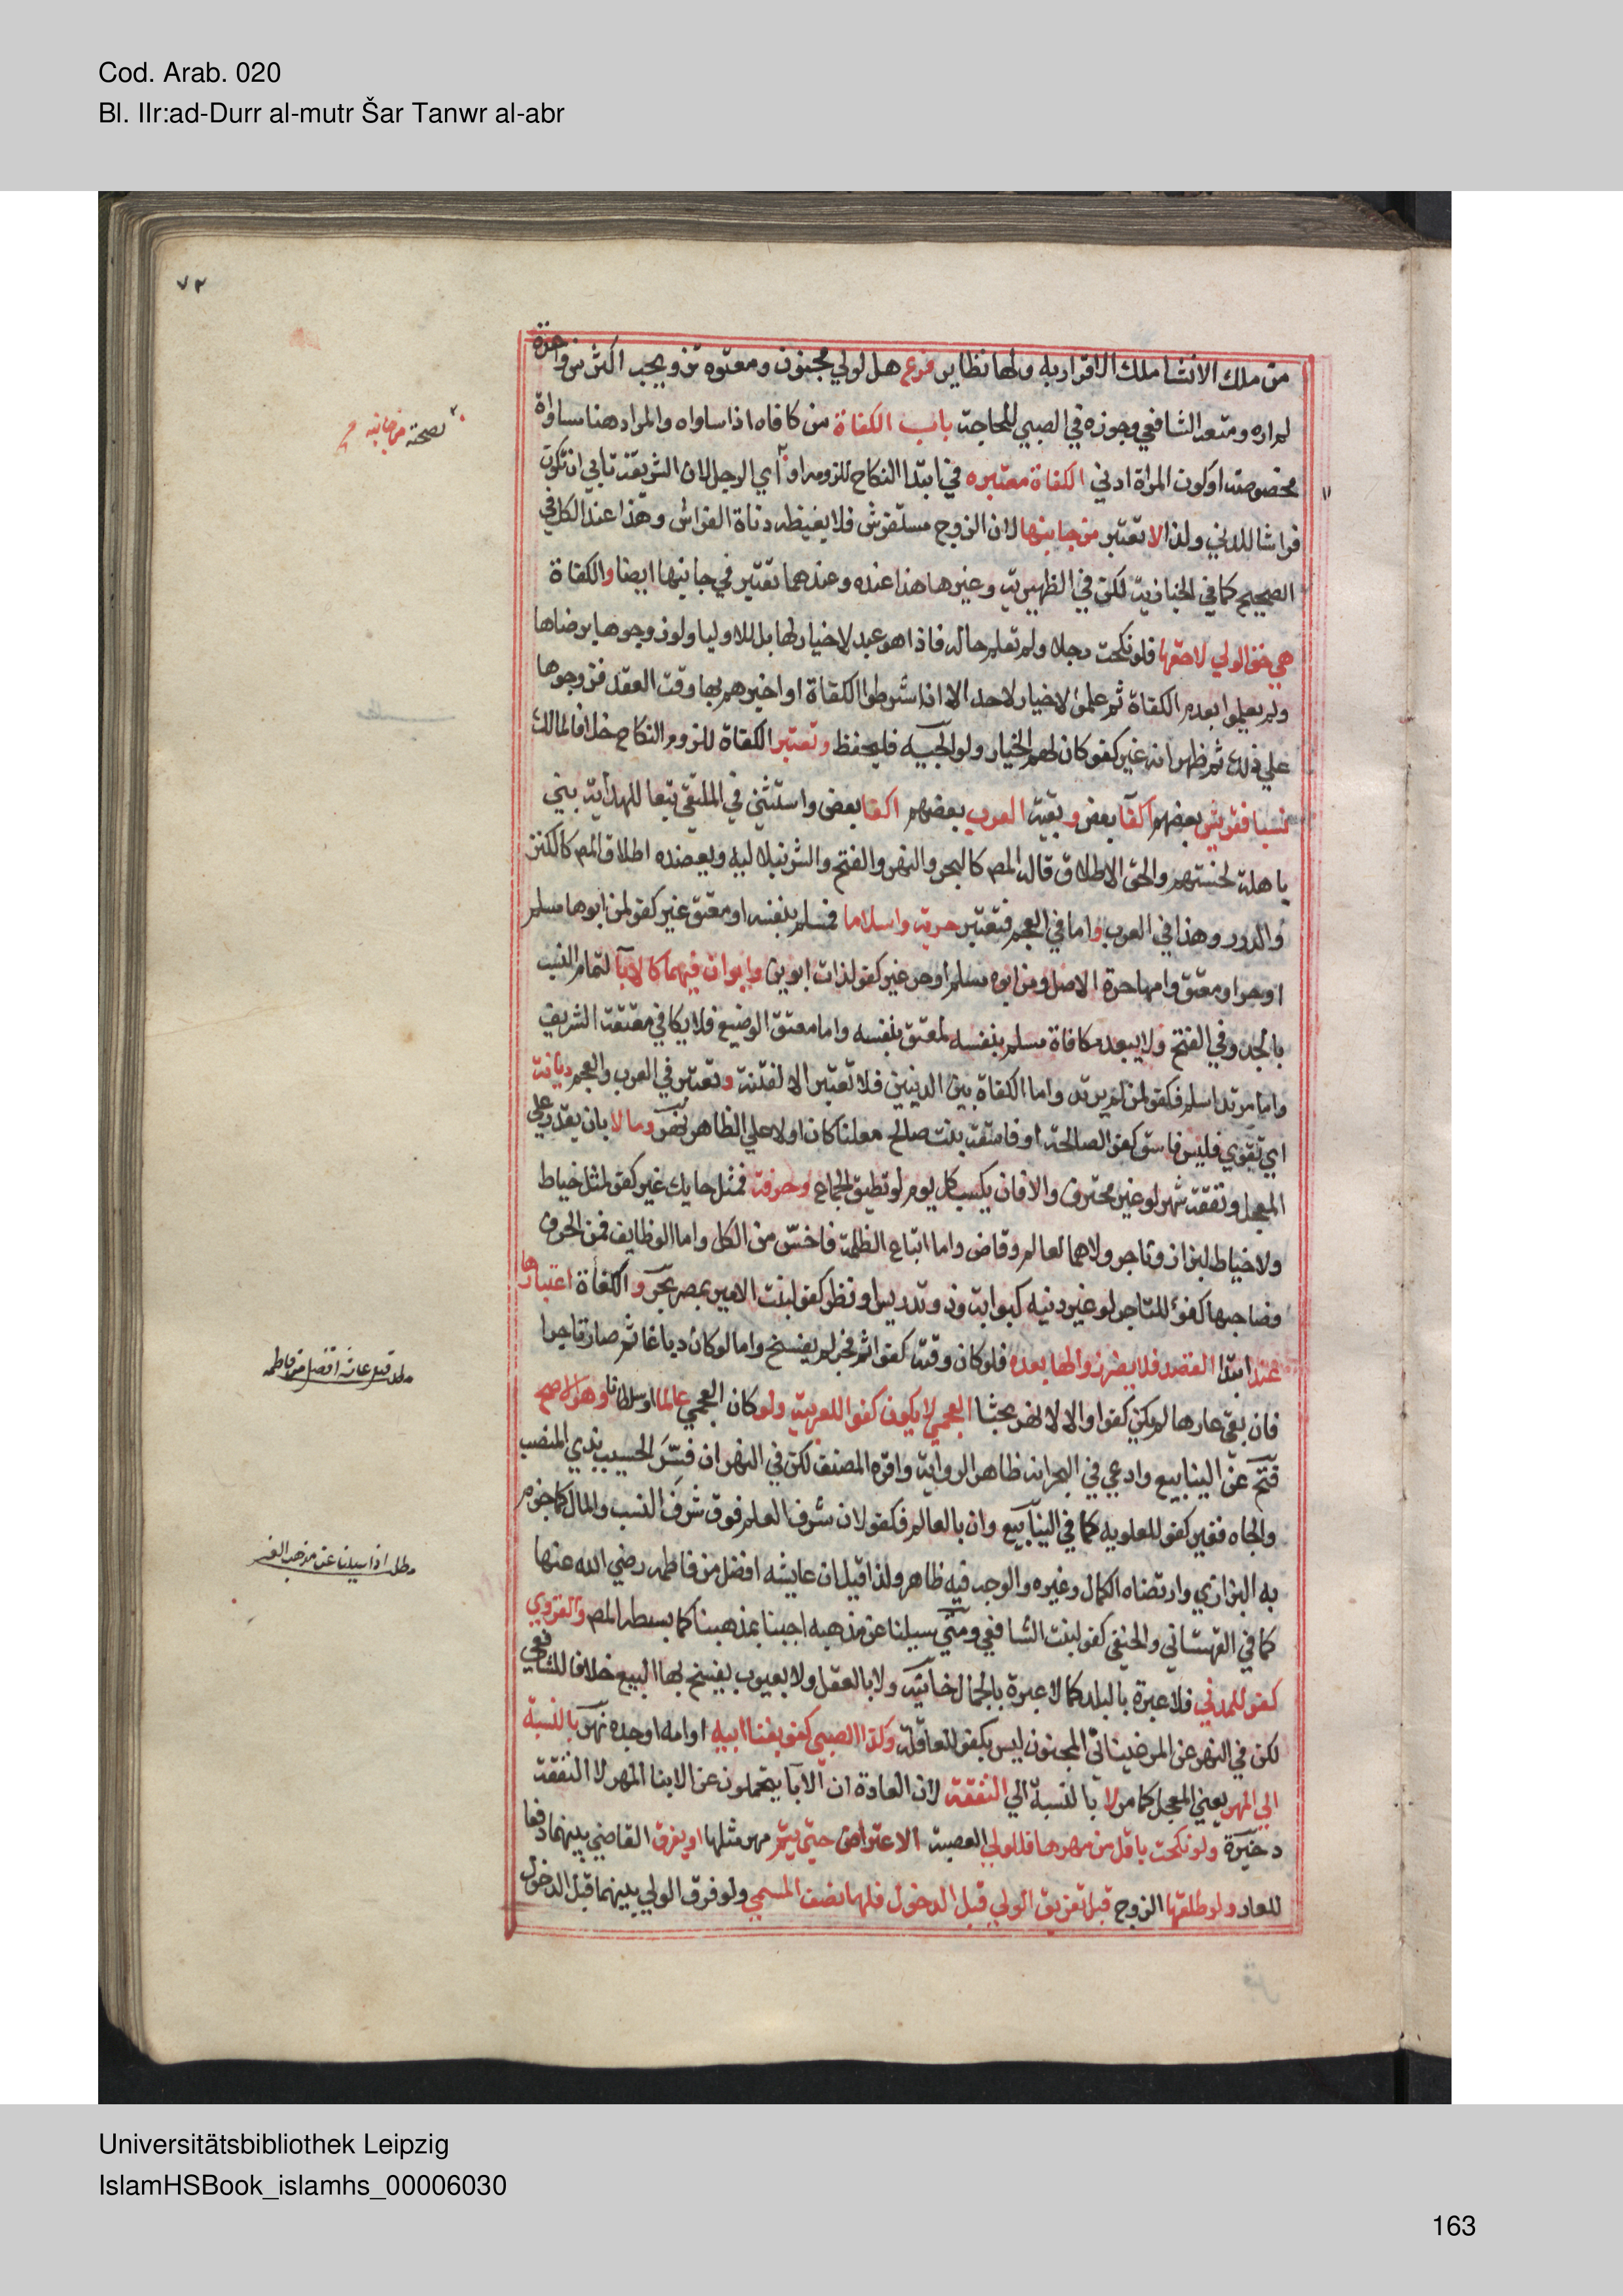 Cod. Arab. 020
Bl. IIr:ad-Durr al-mutr Šar Tanwr al-abr
٧٢
من ملك الانشا ملك الاقرار به ولها نظاير فرع هل لولي مجنون ومعتوه تزويجه اكثر من واحدة
لم اره ومنعه الشافعي وجوزه في الصبي للحاجة باب الكفاة من كافاه اذا ساواه والمراد هنا مساواة
مخصوصة او كون المراة ادني الكفاة معتبره في ابتدا النكاح للزومه او اي الرجل لان الشريفة تابي ان تكون
فراشا للدني ولذا لا تعتبر من جانبها لان الزوج مستفرش فلا يغيظه دناة الفراش وهذا عند الكل في
الصحيح كما في الخبازية لكن في الظهيرية وغيرها هذا عنده وعندهما تعتبر في جانبها ايضا والكفاة
هي حق الولي لا حقها فلو نكحت رجلا ولم تعلم حاله فاذا هو عبد لا خيار لها بل للاوليا ولو زوجوها برضاها
ولم يعلموا بعدم الكفاة ثم علموا لا خيار لاحد الا اذا شرطوا الكفاة او اخبرهم بها وقت العقد فزوجوها
علي ذلك ثم ظهر انه غير كفو كان لهم الخيار ولوالجيه فليحفظ وتعتبر الكفاة للزوم النكاح خلافا لمالك
نسبا فقريش بعضهم اكفا بعض وبقية العرب بعضهم اكفا بعض واستثني في الملتقي تبعا للهداية بني
باهلة لخستهم والحق الاطلاق قاله المص كالبحر والنهر والفتح والشرنبلاليه ويعضده اطلاق المص كالكنز
والدرر وهذا في العرب واما في العجم فتعتبر حرية واسلاما فمسلم بنفسه او معتق غير كفو لمن ابوها مسلم
او حر او معتق وامها حرة الاصل ومن ابوه مسلم او حر غير كفو لذات ابوين وابوان فيهما كالابا لتمام النسب
بالجد وفي الفتح ولا يبعد مكافاة مسلم بنفسه لمعتق بنفسه واما معتق الوضيع فلا يكافي معتقة الشريف
واما مرتد اسلم فكفو لمن لم يرتد واما الكفاة بين الذميين فلا تعتبر الا لفتنة وتعتبر في العرب والعجم ديانة
اي تقوي فليس فاسق كفوا لصالحة او فاسقة بنت صالح معلنا كان او لا علي الظاهر نهر ومالا بان يقدر علي
المعجل ونفقة شهر لو غير محترف والا فان يكسب كل يوم لو تطيق الجماع وحرفة فمثل حايك غير كفو لمثل خياط
ولا خياط لبزاز وتاجر ولا هما لعالم وقاض واما اتباع الظلمة فاخس من الكل واما الوظايف فمن الحرف
فصاحبها كفؤ للتاجر لو غير دنيه كبوابة وذو تدريس او نظر كفو لبنت الامير بمصر بحر والكفأة اعتبارها
عند ابتدا العقد فلا يضر زوالها بعده فلو كان وقته كفوا ثم فجر لم يفسخ واما لو كان دباغا ثم صار تاجرا
فان بقي عارها لم يكن كفوا والا لا نهر بحثا العجمي لا يكون كفوا للعربية ولو كان العجمي عالما او سلطانا وهو الاصح
فتح عن الينابيع وادعي في البحر انه ظاهر الرواية واقره المصنف لكن في النهر ان فسر الحسيب بذي المنصب
والجاه فغير كفو للعلويه كما في الينابيع وان بالعالم فكفو لان شرف العلم فوق شرف النسب والمال كما جزم
به البزازي وارتضاه الكمال وغيره والوجه فيه ظاهر ولذا قيل ان عايشه افضل من فاطمه رضي الله عنها
كما في القهستاني والحنفي كفو لبنت الشافعي ومتي سيلنا عن مذهبه اجبنا بمذهبنا كما بسطه المص والقروي
كفو للمدني فلا عبرة بالبلد كما لا عبرة بالجمال خانية ولا بالعقل ولا بعيوب يفسخ بها البيع خلافا للشافعي
لكن في النهر عن المرغيناني المجنون ليس بكفو للعاقلة وكذا الصبي كفو بغنا ابيه او امه او جده نهر بالنسبة
الي المهر يعني المعجل كما مر لا بالنسبة الي النفقة لان العادة ان الابا يتحملون عن الابنا المهر لا النفقة
دخيرة ولو نكحت باقل من مهرها فللولي العصبة الاعتراض حتي يتم مهر مثلها او يفرق القاضي بينهما دفعا
للعار ولو طلقها الزوج قبل تفريق الولي قبل الدخول فلها نصف المسمي ولو فرق الولي بينهما قبل الدخول
لصحته من جانبه
مطلب قيل عائشة افضل من فاطمه
مطلب اذا سيلنا عن مذهب الغير
Universitätsbibliothek Leipzig
IslamHSBook_islamhs_00006030
163